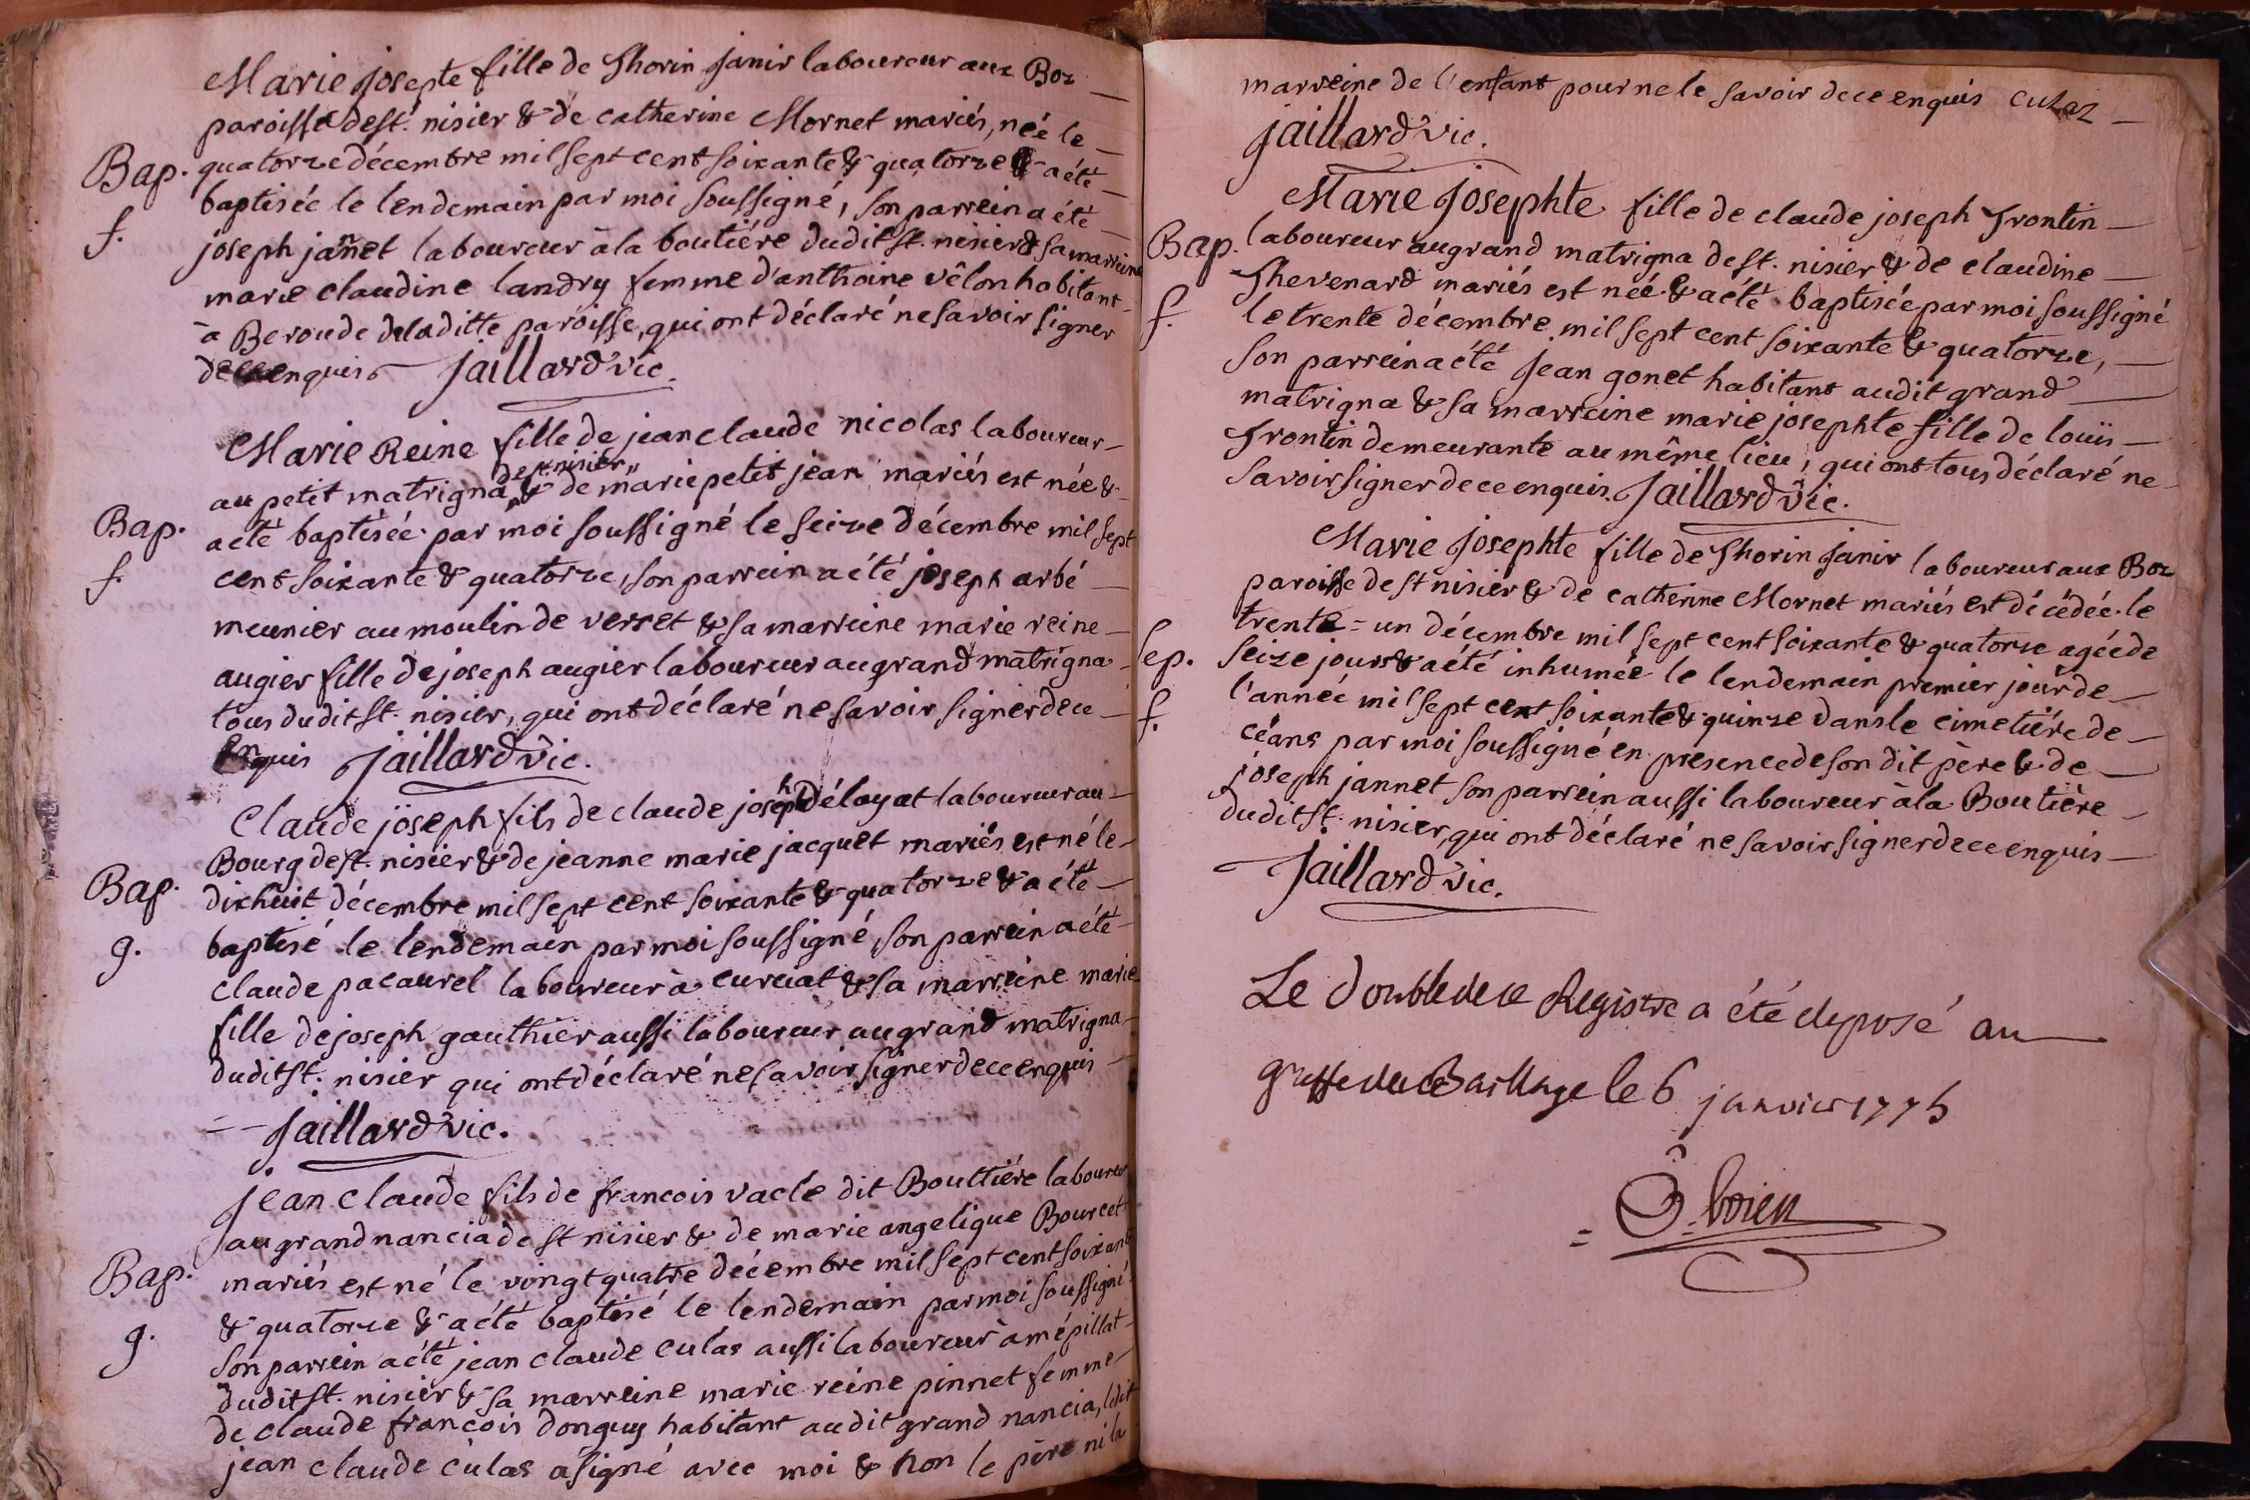 Marie josepte fille de Thorin janir laboureur aux Boz
paroisse de st. nisier & de catherine Mornet mariés, née le
Bap. quatorze décembre mil sept cent soixante & quatorze & a été
baptisée le lendemain par moi soussigné, son parrein a été
f. joseph jannet laboureur à la boutière dudit st. nisier & sa marreine
marie claudine landry femme d'anthoine vêlon habitant
à Beroude de laditte paroisse, qui ont déclaré ne savoir signer
de ce enquis jaillard vic.
Marie Reine fille de jean claude nicolas laboureur
de st. nisier
au petit matrigna & de marie petit jean mariés est née &
Bap. a été baptisée par moi soussigné le seize décembre mil sept
f. cent soixante & quatorze, son parrein a été joseph arbé
meunier au moulin de verset & sa marreine marie reine
augier fille de joseph augier laboureur au grand matrigna
tous dudit st. nisier, qui ont déclaré ne savoir signer de ce
enquis jaillard vic.
Claude joseph fils de claude joseph Délayat laboureur au
Bourg de st. nisier & de jeanne marie jacquet mariés est né le
Bap. dixhuit décembre mil sept cent soixante & quatorze & a été
g. baptisé le lendemain par moi soussigné, son parrein a été
claude pacaurel laboureur à curciat & sa marreine marie
fille de joseph gauthier aussi laboureur au grand matrigna
dudit st. nisier qui ont déclaré ne savoir signer de ce enquis
jaillard vic.
jean claude fils de francois vacle dit Bouttiére laboureur
au grand nancia de st nisier & de marie angelique Bourcet
Bap. mariés est né le vingt quatre décembre mil sept cent soixante
g. & quatorze & a été baptisé le lendemain par moi soussigné
son parrein a été jean claude culas aussi laboureur à mépillat
dudit st. nisier & sa marreine marie reine pinnet femme
de claude françois donguy habitant audit grand nancia, ledit
jean claude culas a signé avec moi & non le père ni la
marreine de l'enfant pour ne le savoir de ce enquis culaz
jaillard vic.
Marie josephte fille de claude joseph Trontin
Bap. laboureur au grand matrigna de st. nisier & de claudine
Thevenard mariés est née & a été baptisée par moi soussigné
f. le trente décembre mil sept cent soixante & quatorze,
son parrein a été jean gonet habitant audit grand
matrigna & sa marreine marie josephte fille de louïs
Trontin demeurante au même lieu, qui ont tous déclaré ne
savoir signer de ce enquis. jaillard vic.
Marie josephte fille de Thorin janir laboureur aux Boz
paroisse de st nisier & de catherine Mornet mariés est décédée le
trente=un décembre mil sept cent soixante & quatorze agée de
Sep. seize jours & a été inhumée le lendemain premier jour de
f. l'année mil sept cent soixante & quinze dans le cimetiére de
céans par moi soussigné en presence de son dit père & de
joseph jannet son parrein aussi laboureur à la Boutière
dudit st. nisier, qui ont déclaré ne savoir signer de ce enquis
jaillard vic.
Le double de ce Registre a été déposé au
greffe de ce Bailliage le 6 janvier 1775